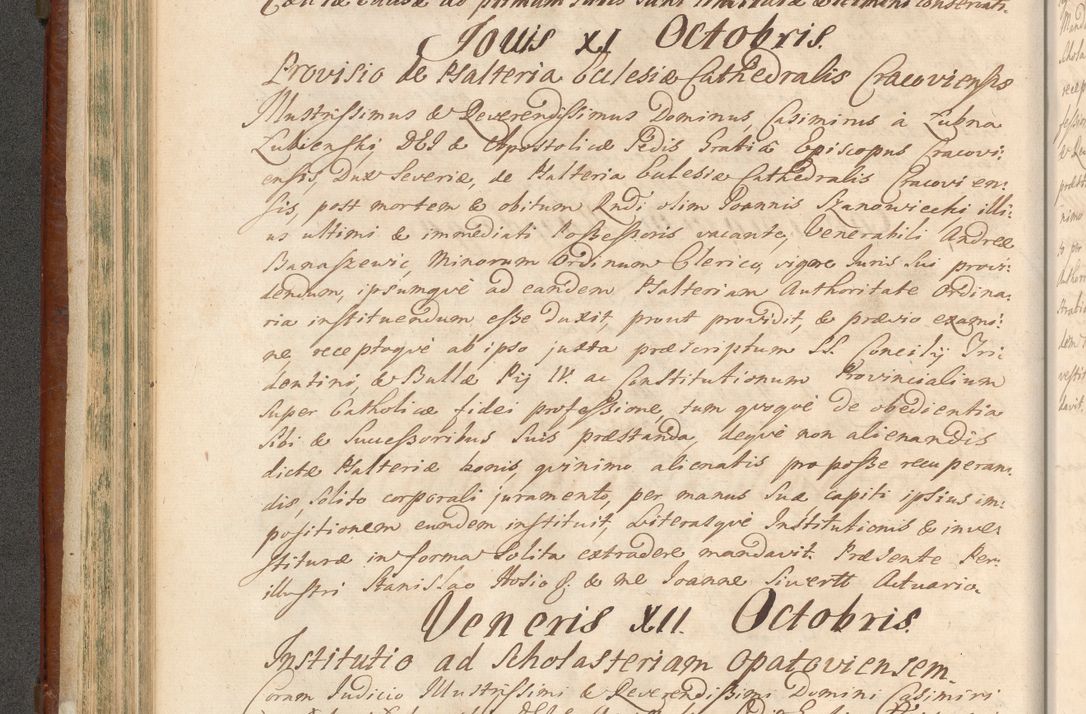 Jouis XI Octobris.
Provisio de Psalteria Ecclesiæ Cathedralis Cracoviensis
Illustrissimus & Reverendissimus Dominus Casimirus à Łubna
Łubienski, DEI & Apostolicæ Sedis Gratiâ Episcopus Cracovi:
ensis, Dux Severiæ, de Psalteria Ecclesiæ Cathedralis Cracovien:
sis, post mortem & obitum Rndi olim Joannis Szanowiecki illi:
us ultimi & immediati Possessoris vacante, Venerabili Andreæ
Banaszewic, Minorum Ordinum Clerico, vigore Juris Sui provi:
dendum, ipsumqvè ad eandem Psalteriam Authoritate Ordina:
ria instituendum esse duxit, prout providit, & prævio exami:
ne, receptoqvè ab ipso juxta præscriptum SS. Concilij Tri
dentini, & Bullæ Pij IV. ac Constitutionum Provincialium
super Catholicæ fidei professione, tum qvoqvè de obedientia
Sibi & Successoribus Suis præstanda, deqvè non alienandis
dictæ Psalteriæ bonis, qvinimo alienatis pro posse recuperan:
dis, solito corporali juramento, per manus Suæ capiti ipsius im:
positionem eundem instituit, Literasqvè Institutionis & inve:
stituræ in forma solita extradere mandavit. Præsente Per:
illustri Stanislao Hosio & me Joanne Siwertt Actuario.
Veneris XII. Octobris.
Institutio ad Scholasteriam Opatoviensem.
Coram Judicio Illustrissimi & Reverendissimi Domini Casimiri